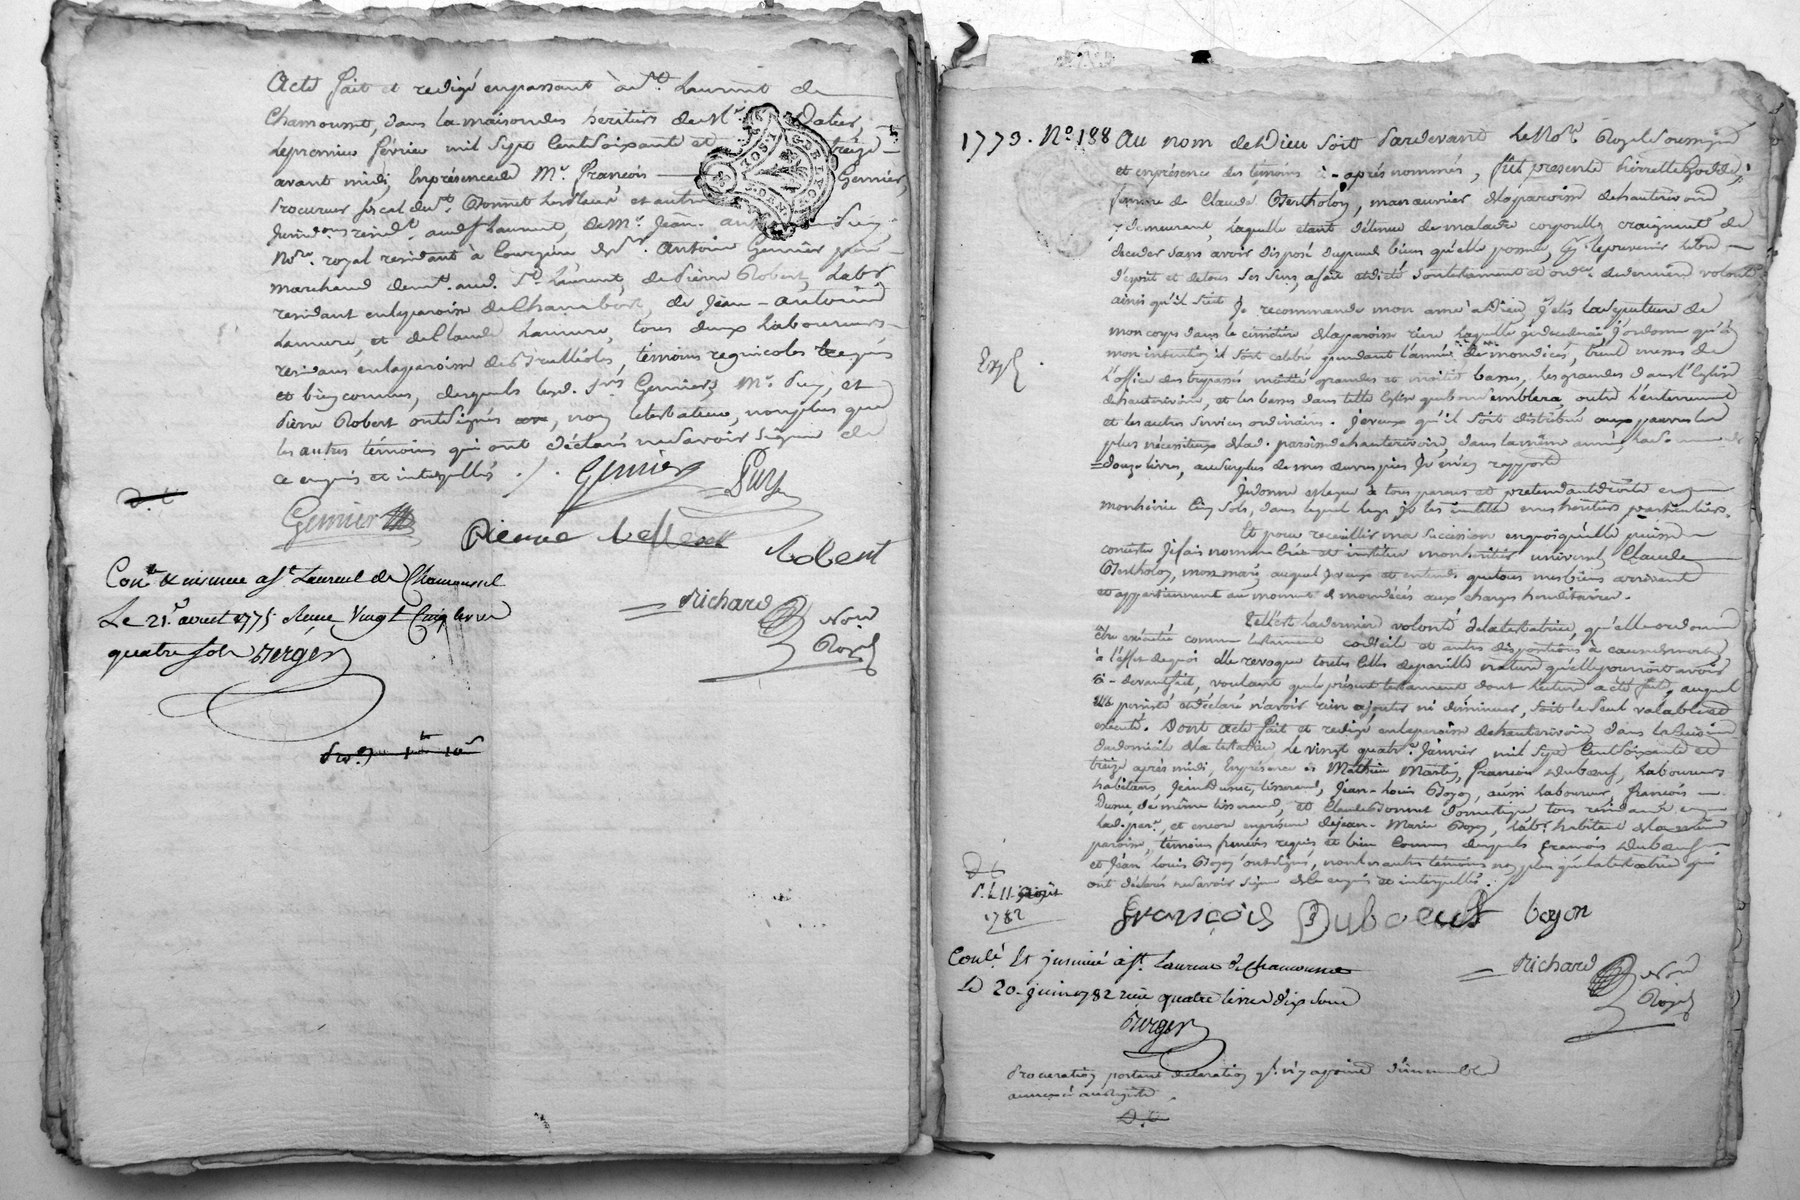 Acte fait et redigé en passant à St. Laurent de
Chamousset, dans la maison des heritiers de Mr. Dalier,
le premier fevrier mil sept cent soixante et treize
avant midi, En présence de Mr. François Gernier,
procureur fiscal du St. Bonnet les Places et autres
Jurid.ons resid.t aud. St Laurent, de Mr. Jean Puy,
No.re royal residant à de Sr. Antoine Gernier
marchand dem.t aud. St. Laurent, de Pierre Robert, Lab.r
residant en la paroisse de Chambost, de Jean-Antoine
Lamure, et de Claude Lamure, tous deux Laboureurs
residans en la paroisse de Brullioles, témoins regnicoles requis
et bien connus, desquels lesd. Srs Gerniers, Mr. Puy, et
Pierre Robert ont signés, non la testatrice, non plus que
les autres témoins qui ont déclaré ne savoir signer de
ce enquis et interpellés ./.
Gernier Puy
Gernier
Pierre Robert
Con.lé & insinué a St. Laurent de Chamousset
Le 21.e avril 1775 Reçu Vingt Cinq livres
quatre sols Berger
Richard No.re Royal
1773. No. 188 Au nom de Dieu soit Pardevant Le No.re Royal Soussigné
et en présence des témoins ci-après nommés, fut presente Pierrette
femme de Claude Bertholon, manœuvrier de la paroisse de hauterivoire
y demeurant, laquelle etant détenue de maladie corporelle craignant de
deceder sans avoir disposé du peu de biens qu'elle possede,
d'esprit et de tous ses sens, a fait et dicté son testament et ord.ce de derniere volonté
ainsi qu'il suit Je recommande mon ame à Dieu, J'elis la sepulture de
mon corps dans le cimetière de la paroisse riere laquelle je decederai, J'ordonne qu'à
mon intention il soit celebré pendant l'année de mon décés, trent messes de
l'office des trepassés moitié grandes et moitié basses, les grandes dans l'Eglise
de hauterivoire, et les basses dans telle Eglise que bon semblera outre l'enterrement
et les autres services ordinaires. Je veux qu'il soit distribué aux pauvres les
plus nécessiteux de lad. paroisse de hauterivoire, dans la même année, la somme de
douze livres, au surplus de mes œuvres pies Je m'en rapporte
Exp.é
Je donne et legue à tous parens et pretendants droits en
mon hoirie Cinq Sols, dans lequel legs je les institue mes heritiers particuliers.
Et pour recueillir ma succession en quoi qu'elle puisse
consister Je fais nomme crée et institue mon heritier universel Claude
Bertholon, mon mari, auquel Je veux et entends que tous mes biens arrivent
et appartiennent au moment de mon decès aux charges hereditaires.
Telle est la derniere volonté de la testatrice, qu'elle ordonne
être exécutée comme testament codicile et autres dispositions à cause de mort,
à l'effet de quoi elle revoque toutes celles de pareille nature qu'elle pourroit avoir
ci-devant fait, voulant que le présent testament dont lecture a été faite, auquel
elle persiste et déclare n'avoir rien ajouter ni diminuer, soit le seul valable et
exécuté. Dont acte fait et redigé en la paroisse de hauterivoire dans la cuisine
du domicile de la testatrice Le vingt quatre Janvier mil sept cent soixante et
treize après midi, En présence de Mathieu Martin, François Dubœuf, Laboureurs
habitans, Jean Dusuc, tisserand, Jean-Louis Boyon, aussi Laboureur, François
Dusuc, de même tisserand, et Claude Bonnet domestique tous residant en
lad. par.se, et encore en présence de Jean-Marie Boyon, Lab.r habitant de la même
paroisse, témoins requis et bien connus desquels François Dubœuf
et Jean Louis Boyon ont signés, non les autres témoins non plus que la testatrice qui
ont déclarés ne savoir signer de ce enquis et interpellés.
François Duboeuf boyon
S. L. 11 Août
1782
Conlé. Et insinué a St. Laurent de Chamousset
Le 20. juin 1782 reçu quatre livres dix sous
Berger
Richard No.re Royal
Procuration portant declaration qu'il n'y a point d'immeuble
annexée au registre.